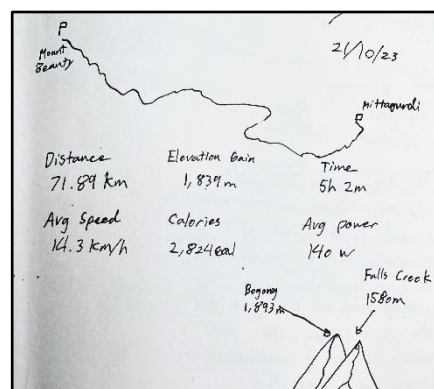 P
Mount
Beauty
21/10/23
Mittagundi
Distance
71.89 km
Elevation Gain
1,839m
Time
5h 2m
Avg Speed
14.3 km/h
Calories
2,824cal
Avg power
140 W
Bogong
1,893m
Falls Creek
1580m